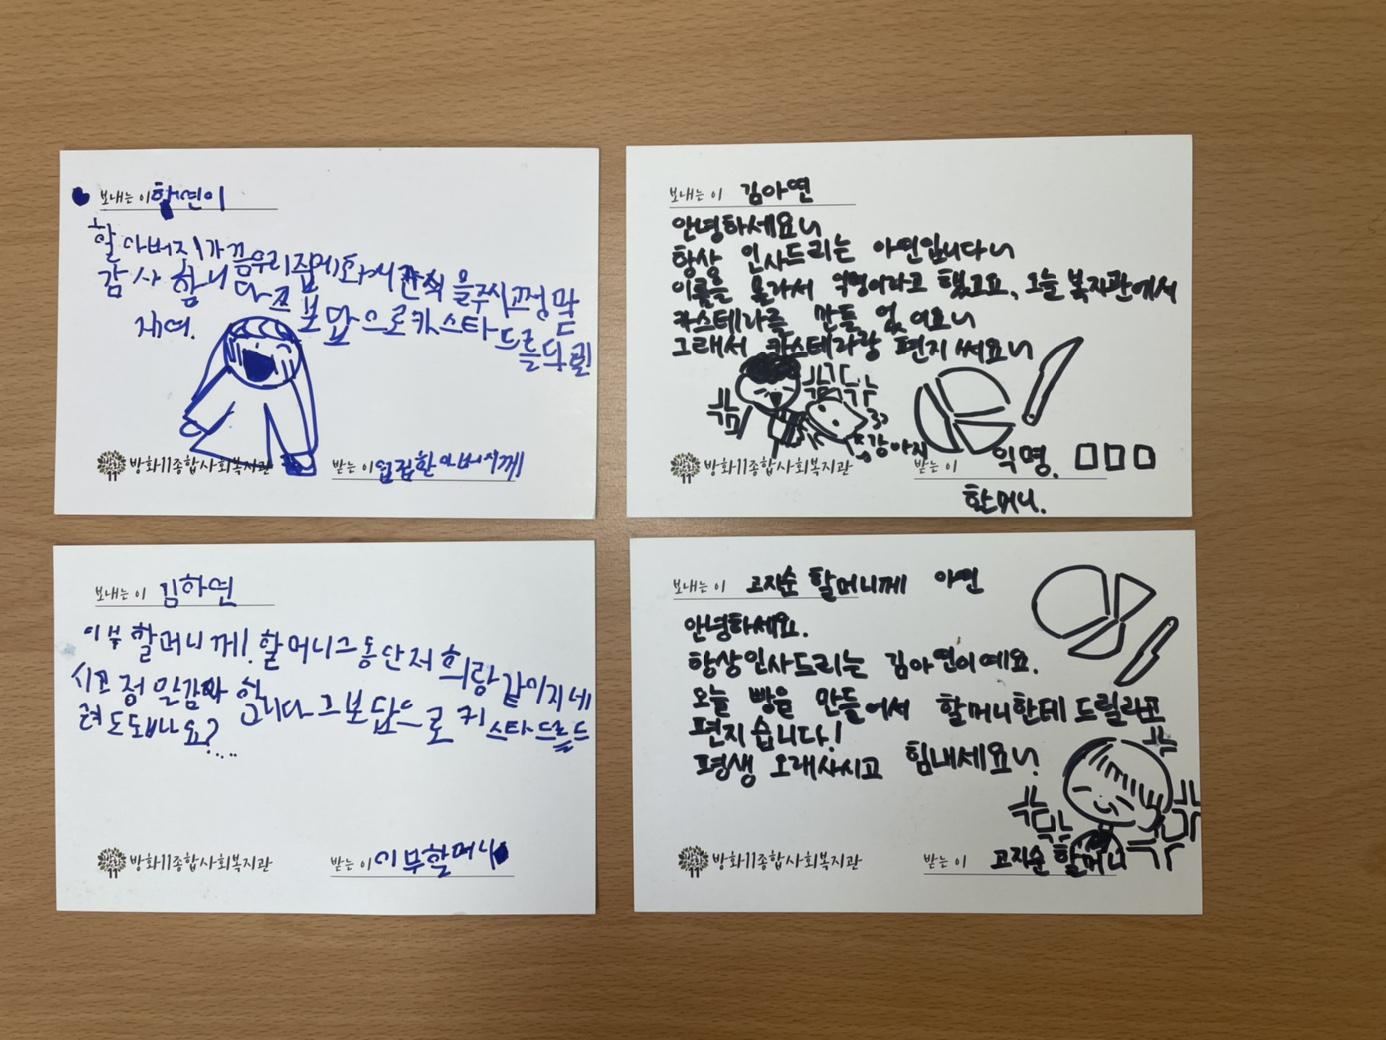 보내는 이 하연이
할아버지가끔우리집에와서간식을주시고정말
감사합니다그보답으로카스타드를드릴
게여.
방화11종합사회복지관
받는 이 옆집할아버지께
보내는 이 김아연
안녕하세요~
항상 인사드리는 아연입니다~
이름을 몰라서 익명이라고 했고요, 오늘 복지관에서
카스테라를 만들 었 어요~
그래서 카스테라랑 편지 써요~
강아지
방화11종합사회복지관
받는 이 익명. □□□
할머니.
보내는 이 김하연
이부 할머니께! 할머니그동안저희랑같이지내
시고 정말감사합니다그보답으로카스타드르드
려도돼나요?....
방화11종합사회복지관
받는 이 이부할머니
보내는 이 고지순 할머니께 아연
안녕하세요.
항상인사드리는 김아연이예요.
오늘 빵을 만들어서 할머니한테 드릴라고
편지 습니다!
평생 오래사시고 힘내세요~
방화11종합사회복지관
받는 이 고지순 할머니